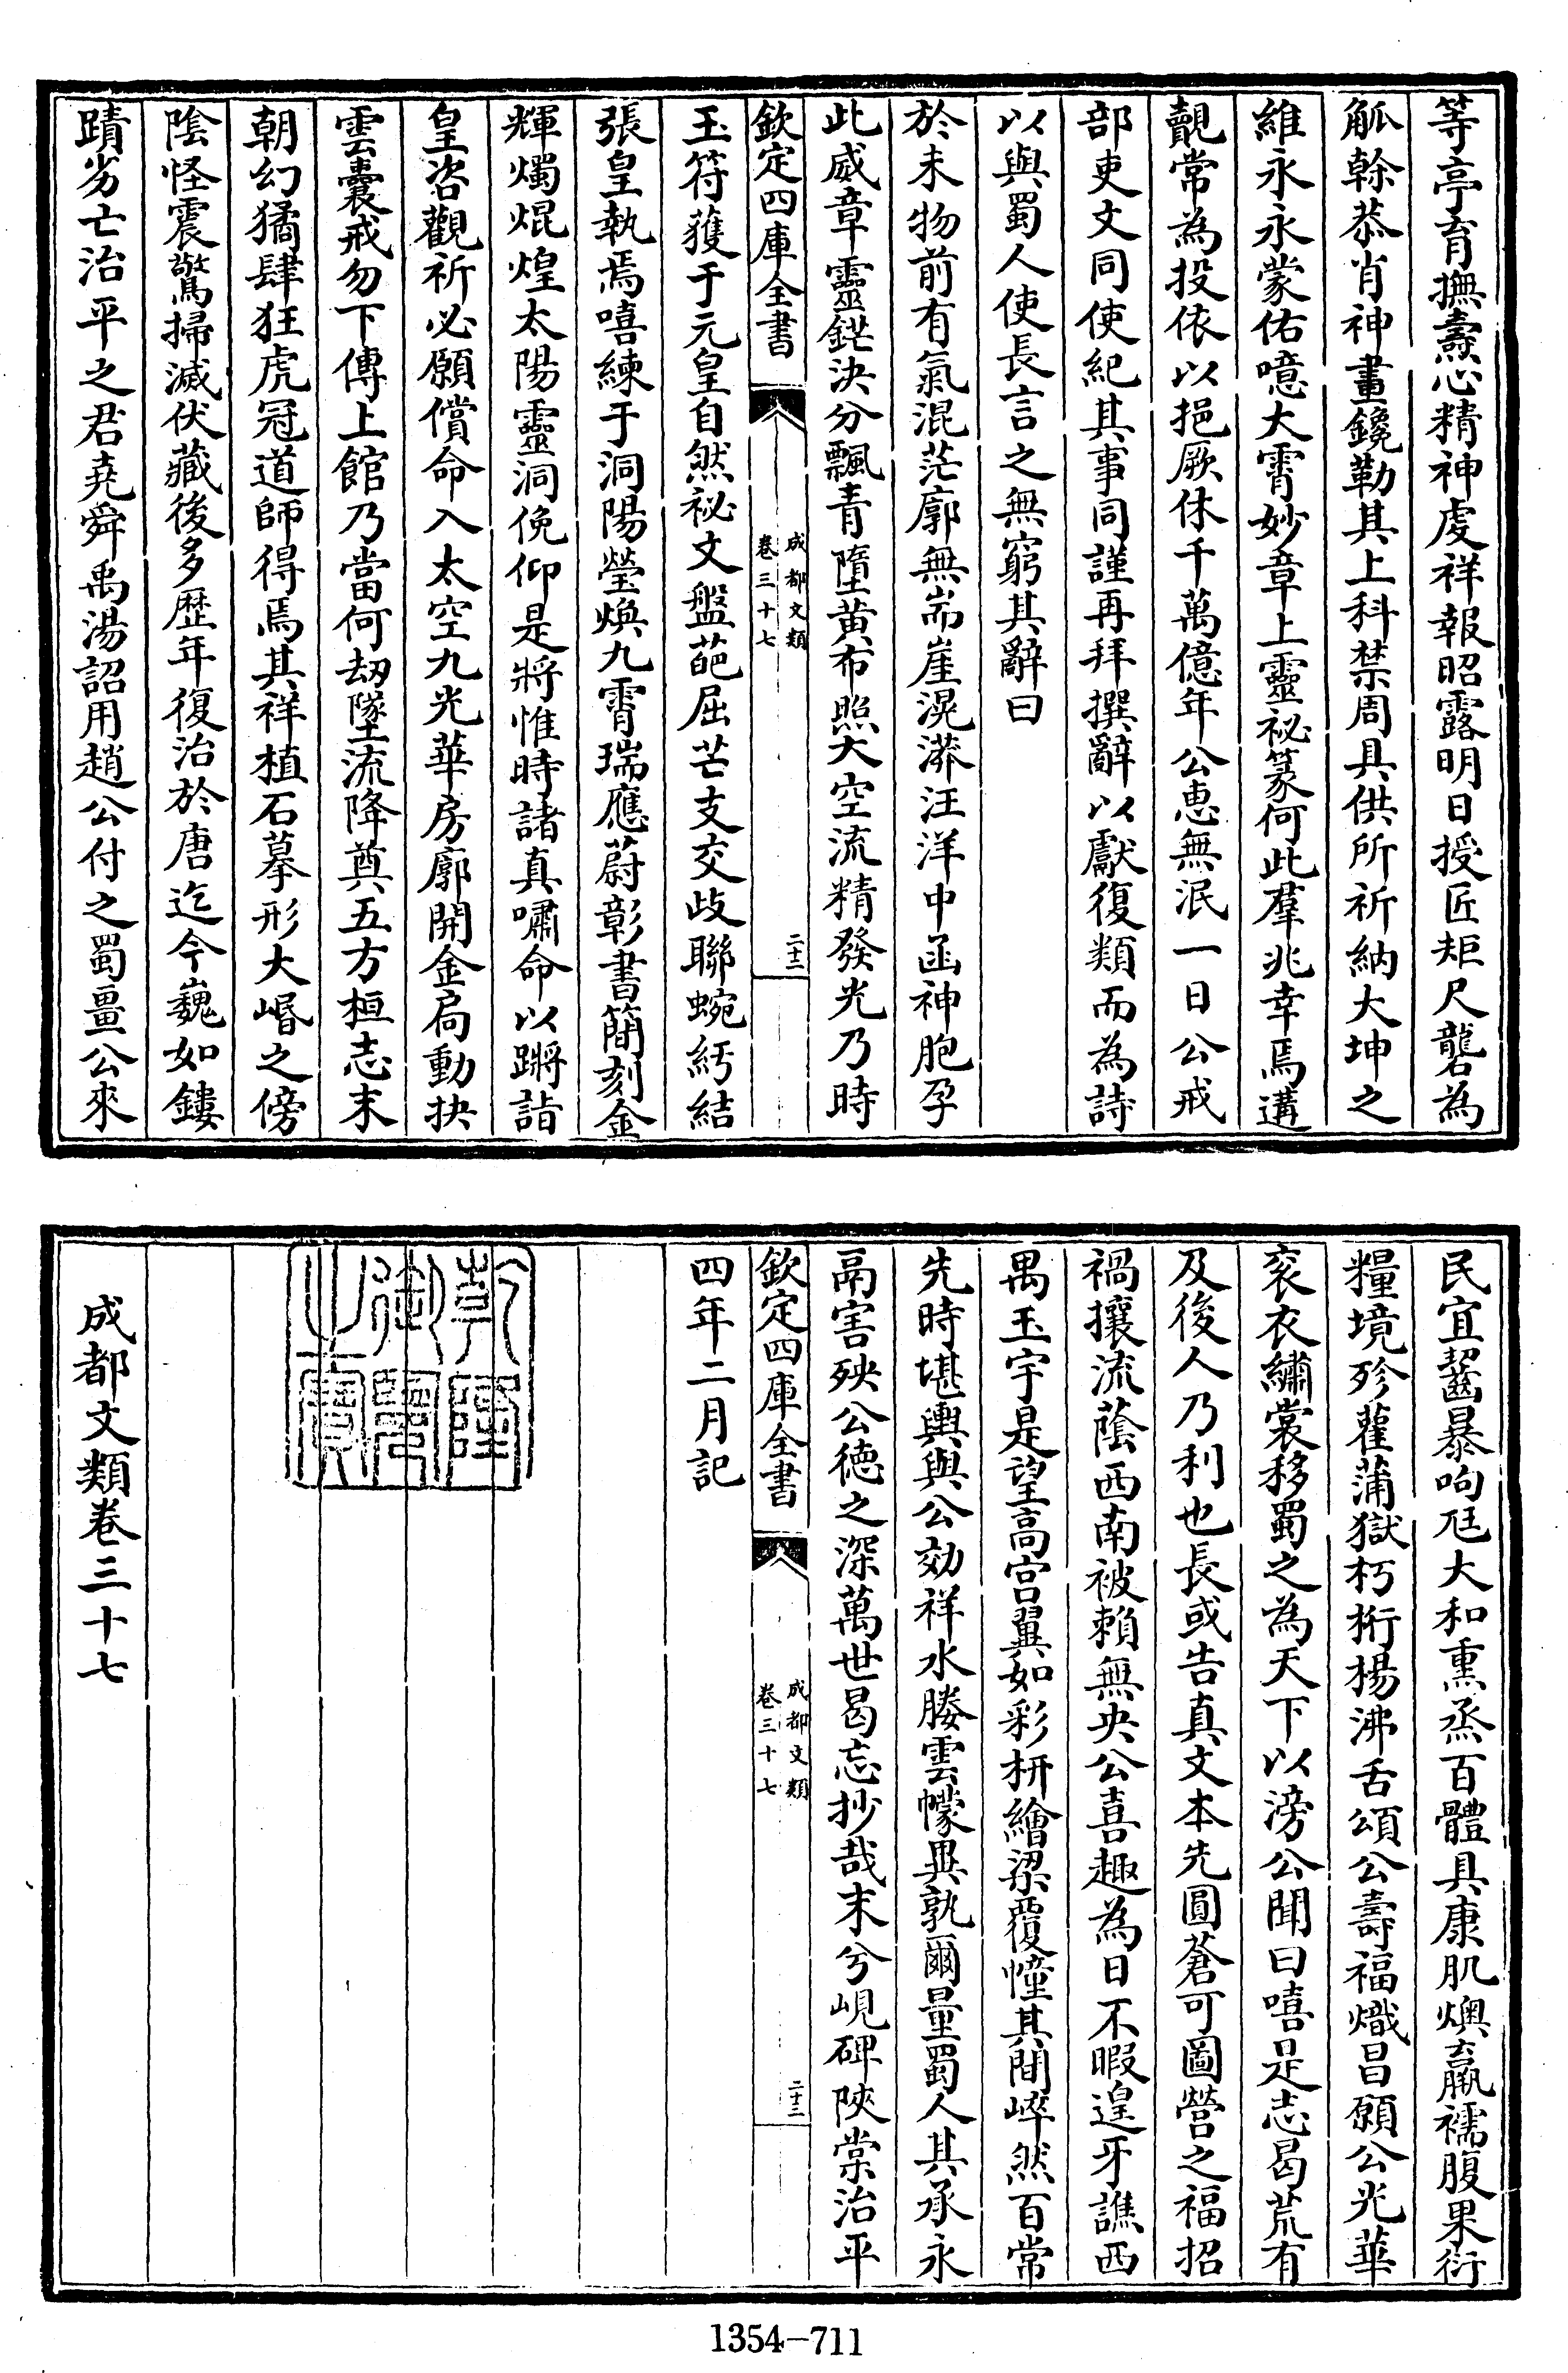 等亭育撫燾心精神虔祥報昭露明日授匠矩尺礱為
觚榦恭肖神畫鑱勒其上科禁周具供所祈納大坤之
維永永蒙佑噫大霄妙章上靈祕篆何此羣兆幸焉遘
覿常為投依以挹厥休千萬億年公惠無泯一日公戒
部吏文同使紀其事同謹再拜撰辭以獻復類而為詩
以與蜀人使長言之無窮其辭曰
於未物前有氣混茫廓無耑崖滉漭汪洋中函神胞孕
此威章靈鋩決分飄青墮黃布照大空流精發光乃時
欽定四庫全書
成都文類
卷三十七
二十二
玉符獲于元皇自然祕文盤葩屈芒支交歧聯蜿紆結
張皇執焉嘻練于洞陽瑩煥九霄瑞應蔚彰書簡刻金
輝燭焜煌太陽靈洞俛仰是將惟時諸真嘯命以蹡詣
皇咨觀祈必願償命入太空九光華房廓開金扃動抉
雲囊戒勿下傳上館乃當何刼墜流降奠五方桓志末
朝幻獝肆狂虎冠道師得焉其祥植石摹形大㟭之傍
陰怪震驚掃滅伏藏後多歷年復治於唐迄今巍如鏤
蹟劣亡治平之君堯舜禹湯詔用趙公付之蜀畺公來
民宜齧暴呴尫大和熏烝百體具康肌燠羸襦腹果衍
糧境殄萑蒲獄朽桁楊沸舌頌公壽福熾昌願公光華
衮衣繡裳移蜀之為天下以滂公聞曰嘻是志曷荒有
及後人乃利也長或告真文本先圓蒼可圖營之福招
禍攘流蔭西南被賴無央公喜趣為日不暇遑牙譙西
禺玉宇是望高宫翼如彩枅繪梁覆幢其間崪然百常
先時堪輿與公効祥水媵雲幪異孰爾量蜀人其承永
鬲害殃公德之深萬世曷忘抄哉末兮峴碑陝棠治平
欽定四庫全書
成都文類
卷三十七
二十三
四年二月記
乾隆御覽之寶
成都文類卷三十七
1354-711